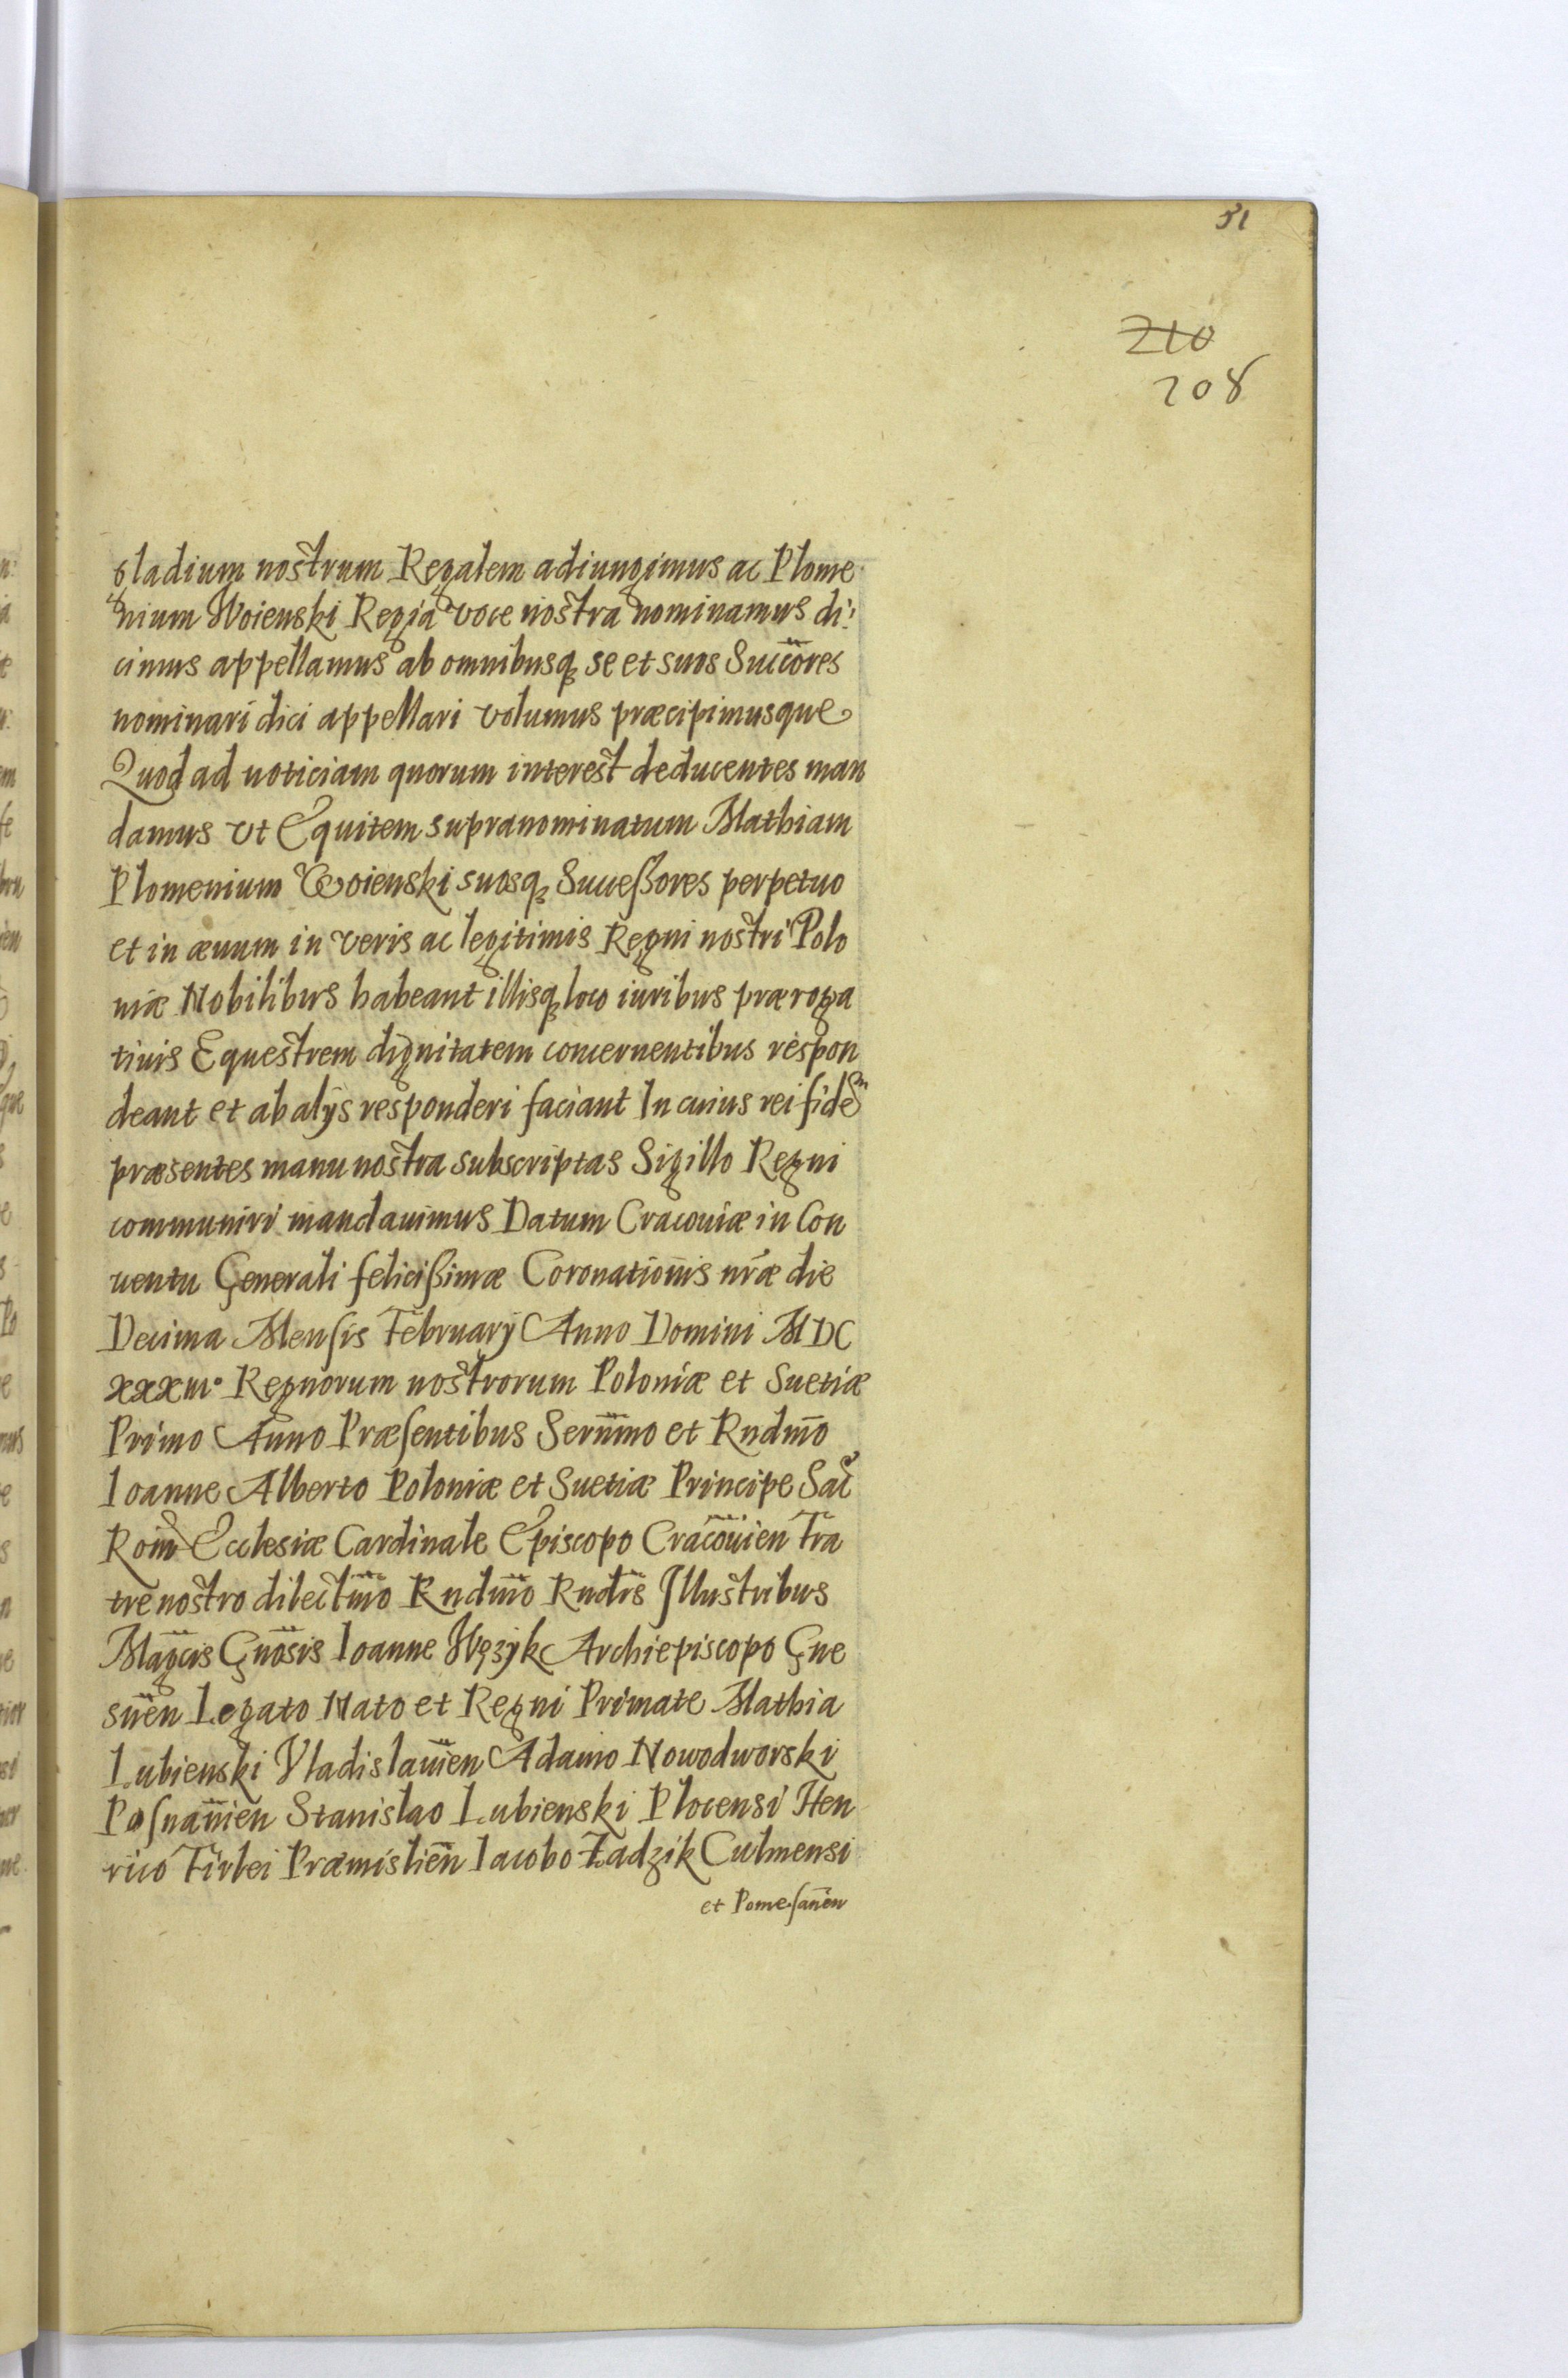 51
210
208
gladium nostrum Regalem adiungimus ac Plome
nium Woienski Regia voce nostra nominamus di:
cimus appellamus ab omnibusq se et suos Succores
nominari dici appellari volumus præcipimusque
Quod ad noticiam quorum interest deducentes man
damus vt Equitem supranominatum Mathiam
Plomenium Woienski suosq Suceßores perpetuo
et in æuum in veris ac legitimis Regni nostri Polo
niæ Nobilibus habeant illisq loco iuribus præroga
tiuis Equestrem dignitatem concernentibus respon
deant et ab alijs responderi faciant In cuius rei fidem
præsentes manu nostra subscriptas Sigillo Regni
communiri mandauimus Datum Cracouiæ in Con
uentu Generali felicißimæ Coronationis nræ die
Decima Mensis February Anno Domini MDC
xxxiii° Regnorum nostrorum Poloniæ et Suetiæ
Primo Anno Præsentibus Sernmo et Rndmo
Ioanne Alberto Poloniæ et Suetiæ Principe Sac
Rom Ecclesiæ Cardinale Episcopo Cracouien Fra
tre nostro dilectmo Rndmo Rndis Illustribus
Magcis Gnosis Ioanne Wężyk Archiepiscopo Gne
snen Legato Nato et Regni Primate Mathia
Lubienski Vladislauien Adamo Nowodworski
Posnanien Stanislao Lubienski Plocensi Hen
rico Firlei Præmislien Iacobo Zadzik Culmensi
et Pomesanien